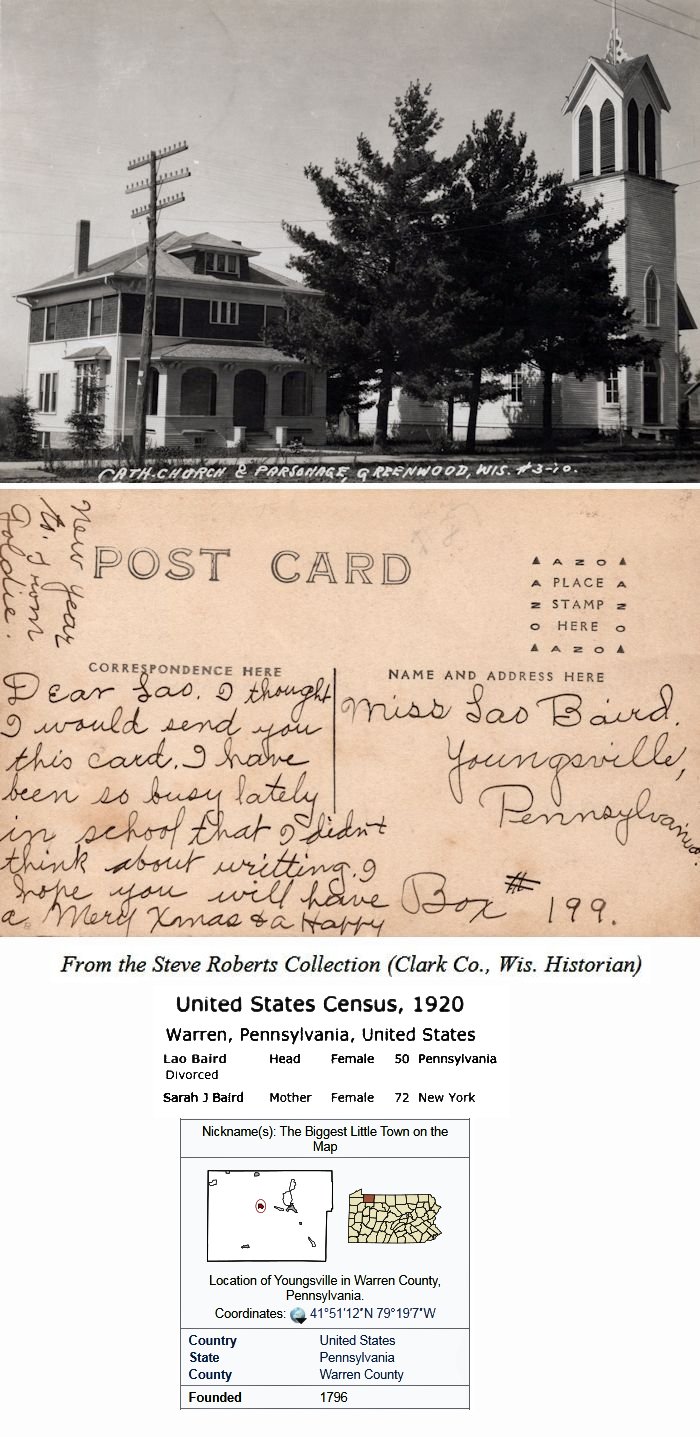 CATH. CHURCH & PARSONAGE, GREENWOOD, WIS. #3-10.
POST CARD
A Z O
PLACE
STAMP
HERE
A Z O
CORRESPONDENCE HERE
NAME AND ADDRESS HERE
Dear Lao. I thought
I would send you
this card. I have
been so busy lately
in school that I didnt
think about writting. I
hope you will have
a Mery Xmas & a Happy
New Year
to. From
Goldie.
Miss Lao Baird.
Youngsville,
Pennsylvania.
Box # 199.
From the Steve Roberts Collection (Clark Co., Wis. Historian)
United States Census, 1920
Warren, Pennsylvania, United States
Lao Baird Head Female 50 Pennsylvania
Divorced
Sarah J Baird Mother Female 72 New York
Nickname(s): The Biggest Little Town on the
Map
Location of Youngsville in Warren County,
Pennsylvania.
Coordinates: 41°51′12″N 79°19′7″W
Country United States
State Pennsylvania
County Warren County
Founded 1796